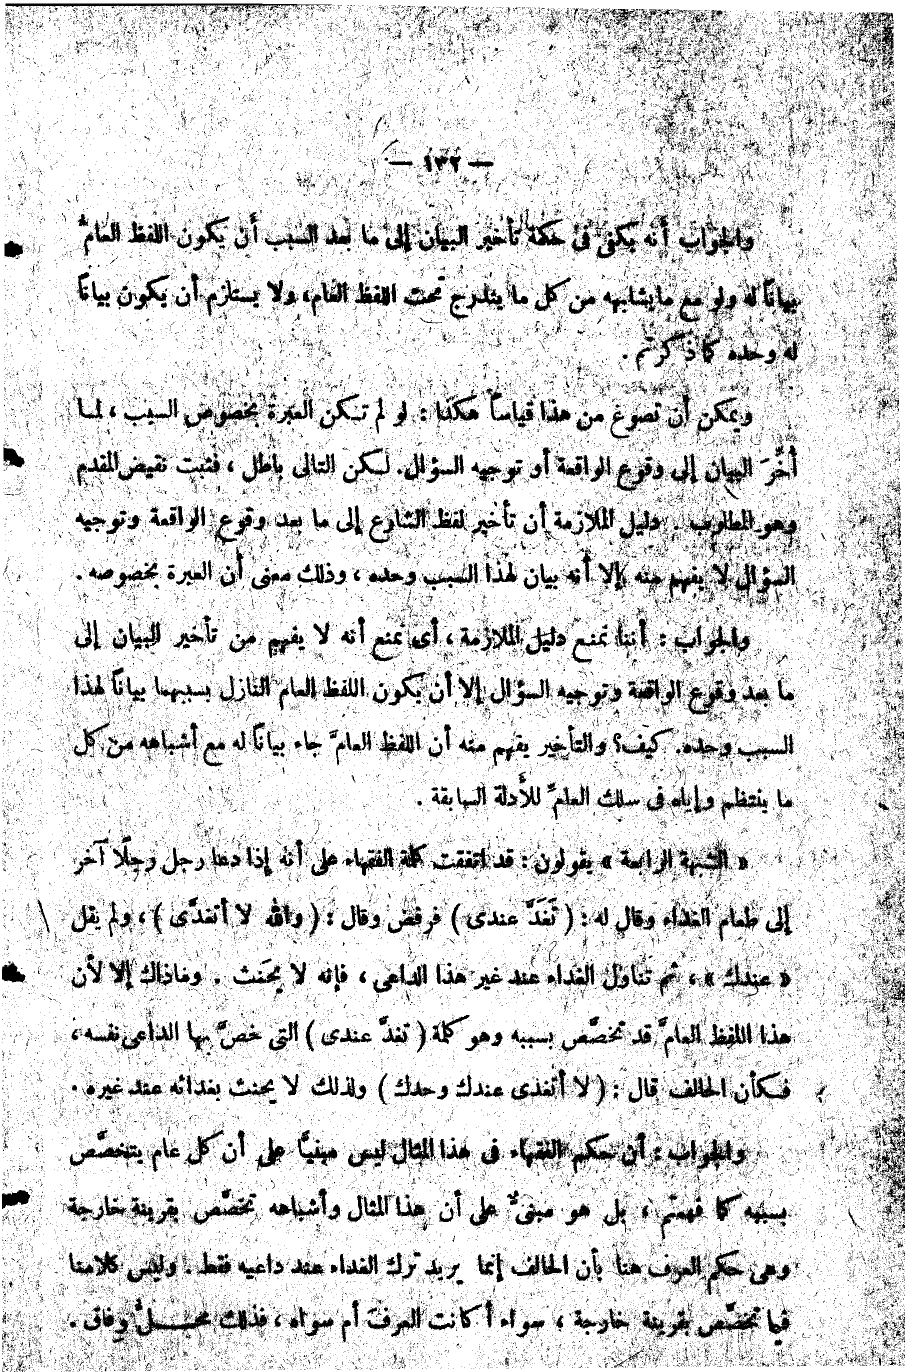 — ١٣٢ —
والجواب أنه يكفى فى حكمة تأخير البيان إلى ما بعد السبب أن يكون اللفظ العامّ
بيانًا له ولو مع مايشابهه من كل ما يندرج تحت اللفظ العام، ولا يستلزم أن يكون بيانًا
له وحده كما ذكرتم .
ويمكن أن نصوغ من هذا قياساً هكذا : لو لم تكن العبرة بخصوص السبب ، لما
أُخِّرَ البيان إلى وقوع الواقعة أو توجيه السؤال. لكن التالى باطل ، فثبت نقيض المقدم
وهو المطلوب . دليل الملازمة أن تأخير لفظ الشارع إلى ما بعد وقوع الواقعة وتوجيه
السؤال لا يفهم منه إلا أنه بيان لهذا السبب وحده ، وذلك معنى أن العبرة بخصوصه .
والجواب : أننا نمنع دليل الملازمة ، أى نمنع أنه لا يفهم من تأخير البيان إلى
ما بعد وقوع الواقعة وتوجيه السؤال إلا أن يكون اللفظ العام النازل بسببهما بيانًا لهذا
السبب وحده. كيف؟ والتأخير يفهم منه أن اللفظ العامَّ جاء بيانًا له مع أشباهه من كل
ما ينتظم وإياه فى سلك العامِّ للأدلة السابقة .
« الشبهة الرابعة » يقولون : قد اتفقت كلمة الفقهاء على أنه إذا دعا رجل رجلًا آخر
إلى طعام الغداء وقال له : ( تَغَدَّ عندى ) فرفض وقال : ( والله لا أتغدَّى ) ، ولم يقل
« عندك » ، ثم تناول الغداء عند غير هذا الداعى ، فإنه لا يحنث . وماذاك إلا لأن
هذا اللفظ العامَّ قد تخصَّص بسببه وهو كلمة ( تغدَّ عندى ) التى خصَّ بها الداعى نفسه ،
فكأن الحالف قال : ( لا أتغدى عندك وحدك ) ولذلك لا يحنث بغدائه عند غيره .
والجواب : أن حكم الفقهاء فى هذا المثال ليس مبنيًّا على أن كل عام يتخصَّص
بسببه كما فهمتم ، بل هو مبنىٌّ على أن هذا المثال وأشباهه تخصَّص بقرينة خارجة
وهى حكم العرف هنا بأن الحالف إنما يريد ترك الغداء عند داعيه فقط . وليس كلامنا
فيما تخصَّص بقرينة خارجة ، سواء أكانت العرفَ أم سواه ، فذلك محلُّ وفاق .